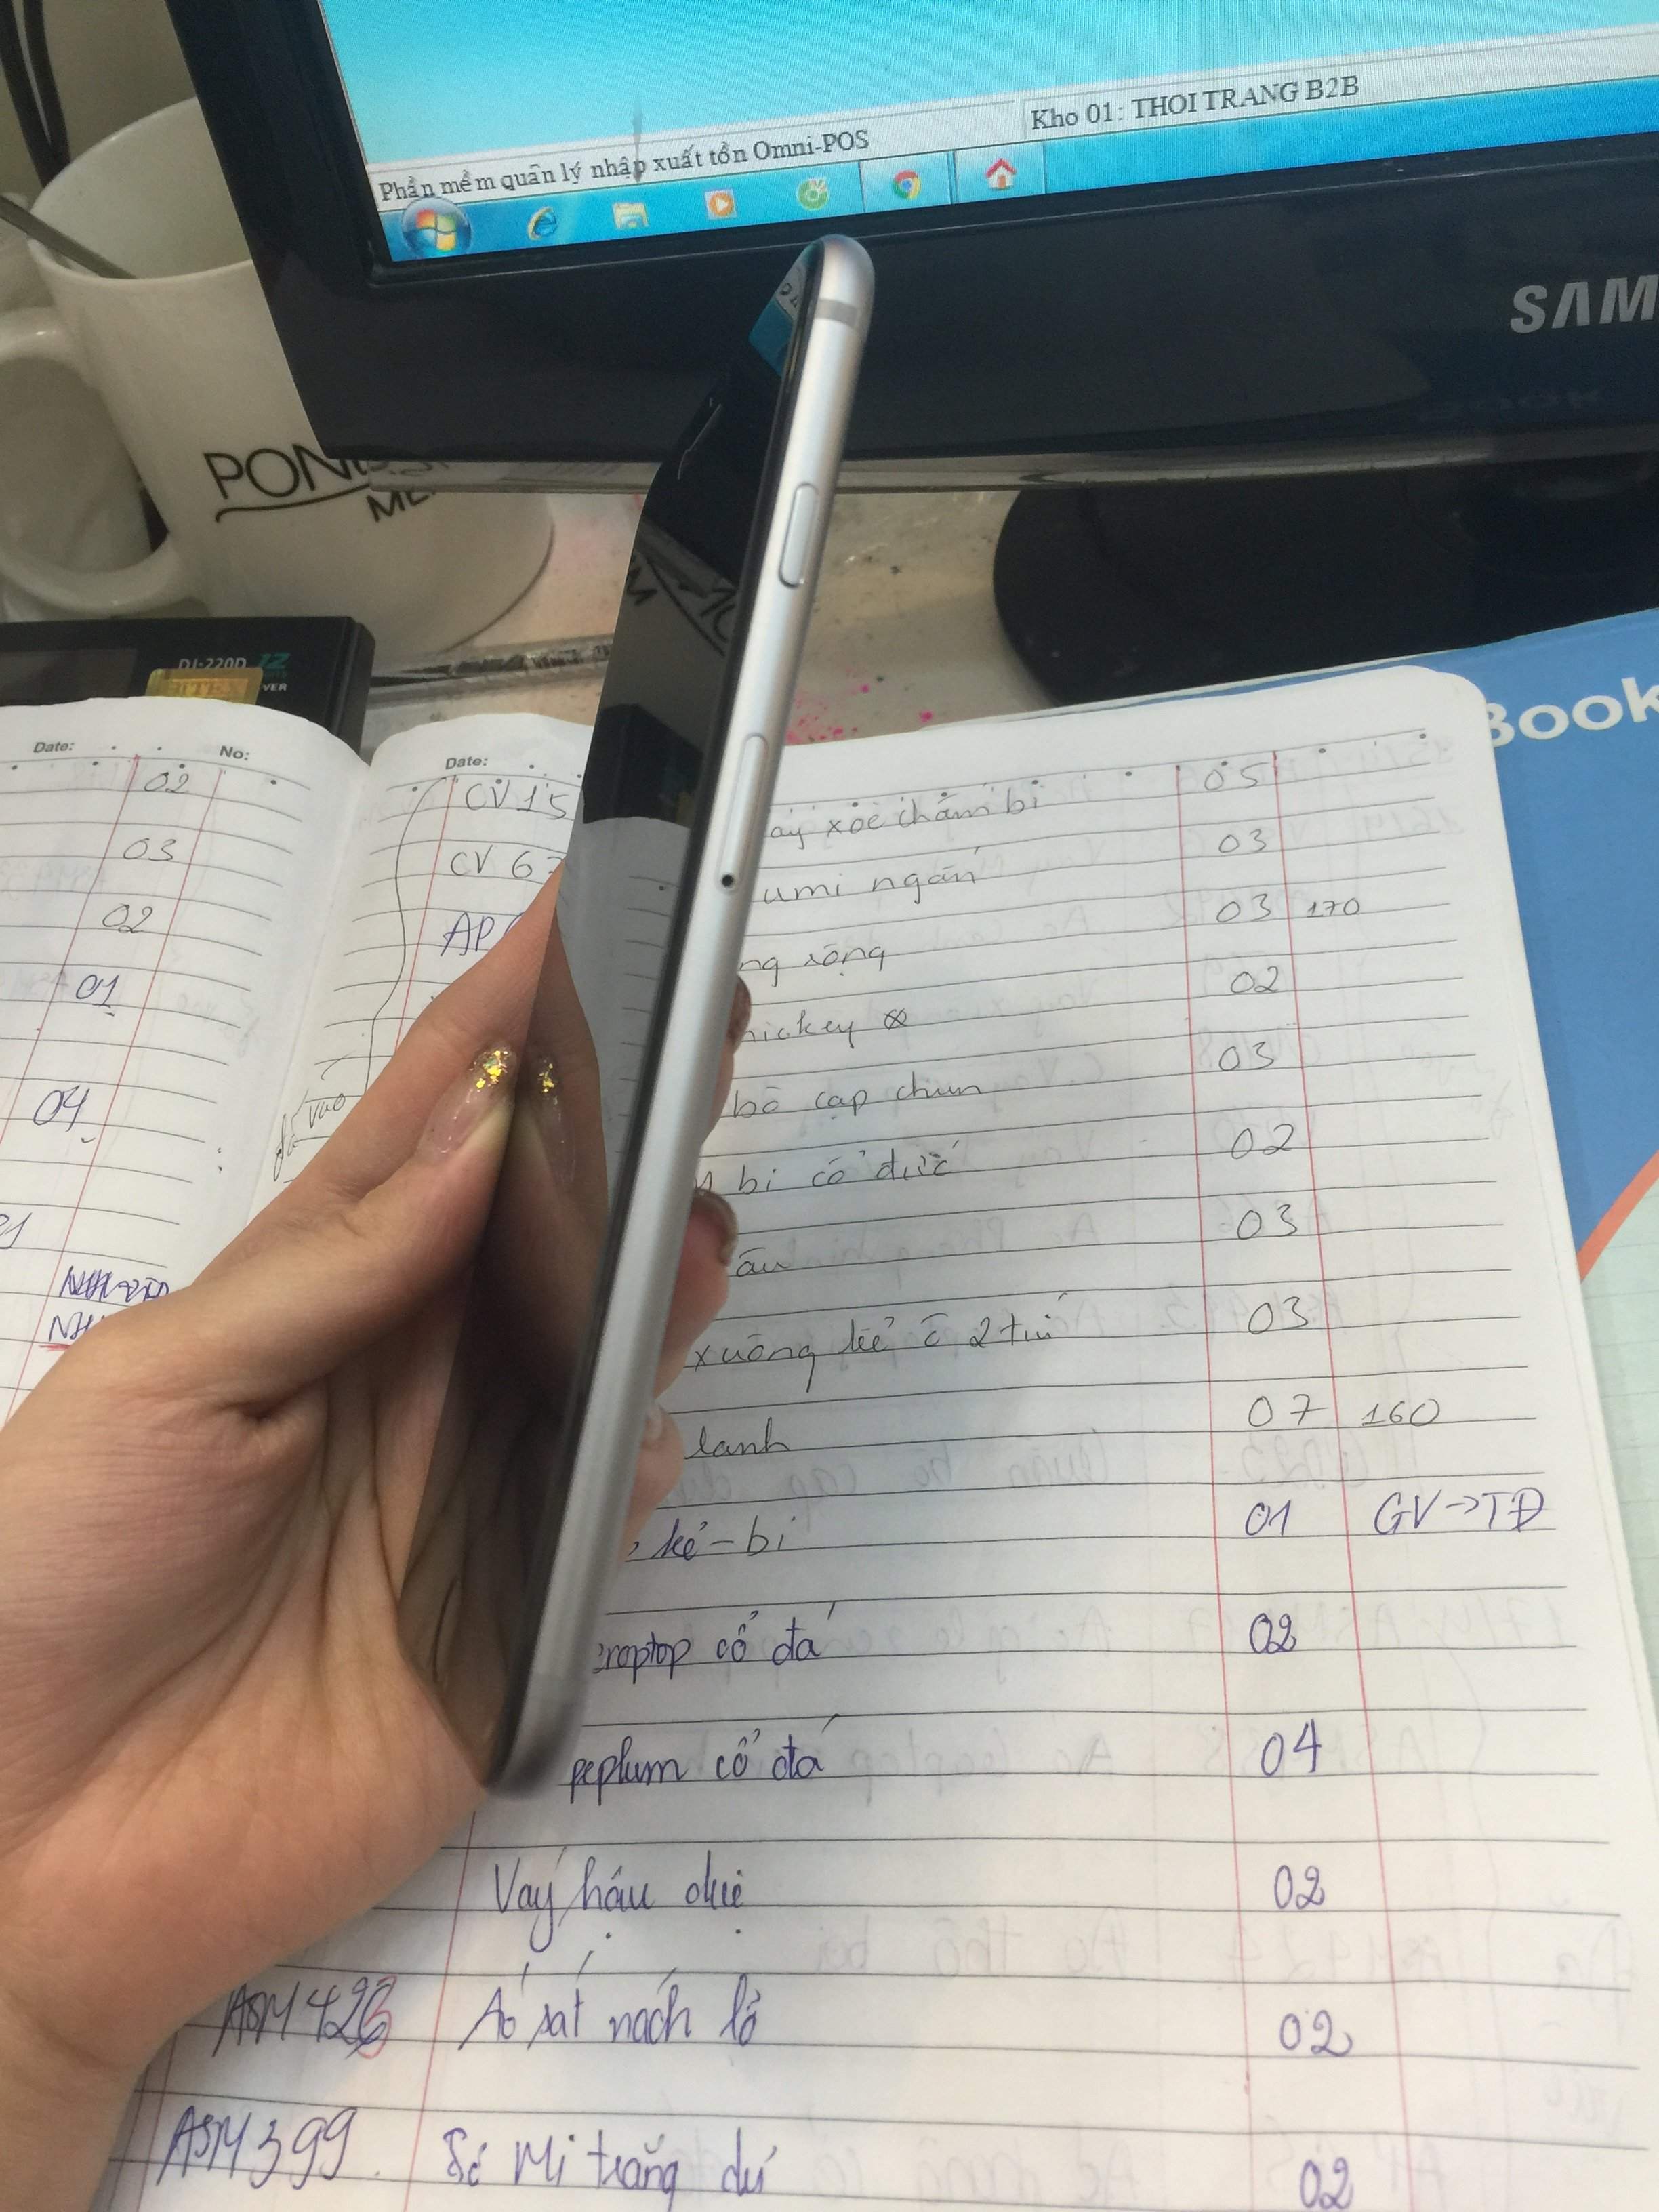 Kho 01: THOI TRANG B2B
Phần mềm quản lý nhập xuất tồn Omni-POS
SAM
POND
DJ-220D 12
Book
Date: No:
02
03
02
01
04
Date:
CV 15
CV 6
AP
đã vào
xòe chấm bi 05
umi ngắn 03
rộng 03 170
mickey 02
bò cạp chun 03
bi cổ đức 02
03
xuông kẻ ô 2 túi 03
lanh 07 160
kẻ - bi 01 GV→TĐ
croptop cổ đá 02
peplum cổ đá 04
Váy hậu duệ 02
ASM 426 Áo sát nách lỡ 02
ASM 399 Sơ Mi trắng dú 02